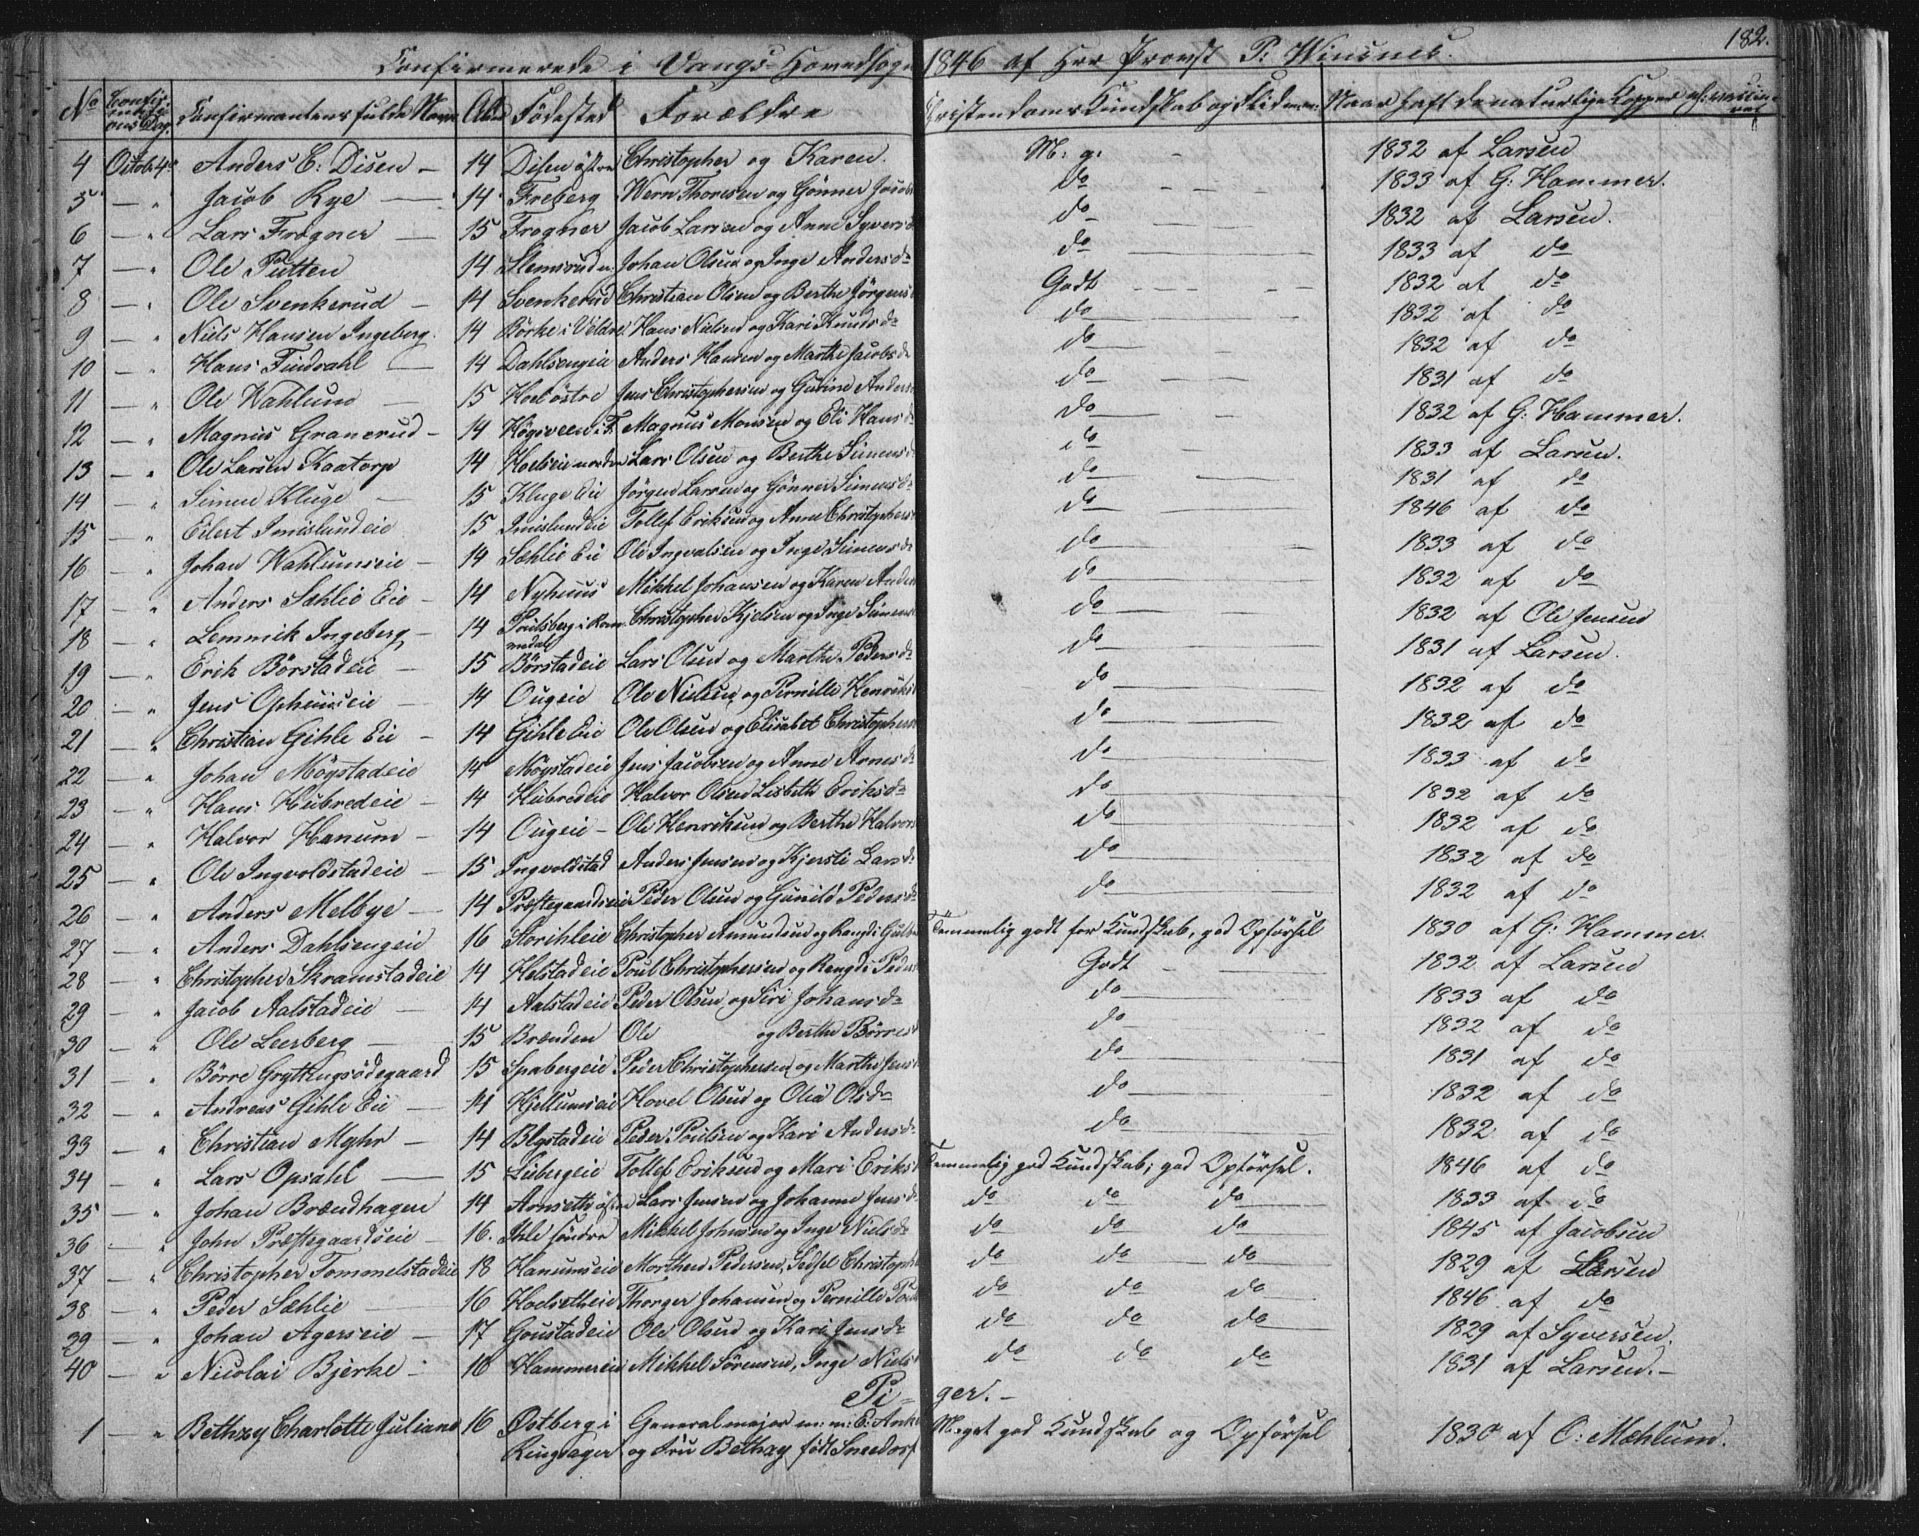 182.
Confirmerede i Vangs Hovedsogn 1846 af Hrr Provst P: Winsnes.
No Confirmations Dag. Confirmantens fulde Navn Alder Fødested Forældre Christendoms Kundskab og Flid Naar haft de naturlige Kopper el: vaccineret
4 Octob. 4de Anders C: Disen – 14 Disen østre Christopher og Karen. M: g: – 1832 af Larsen
5 – " Jacob Rye – 14 Freberg Wern Thoresen og Gønner Jacobs do – 1833 af G: Hammer.
6 – " Lars Frogner – 15 Frogner Jacob Larsen og Anne Syvers do – 1832 af Larsen.
7 – " Ole Putten 14 Slemsrud Johan Olsen og Inge Andersd do – 1833 af do
8 – " Ole Svenkerud – 14 Svenkerud Christian Olsen og Berthe Jørgens Godt – 1832 af do
9 – " Niels Hansen Ingeberg. 14 Børke i Veldre Hans Nielsen og Kari Knudsd do – 1832 af do
10 – " Hans Findrahl – 14 Dahlsengeie Anders Hansen og Marthe Jacobsd do – 1832 af do
11 – " Ole Wahlund – 15 Hoel østre Jens Christophersen og Gurine Anders do – 1831 af do
12 – " Magnus Granerud – 14 Høgsveen i F. Magnus Monsen og Eli Hansd do – 1832 af G: Hammer.
13 – " Ole Larsen Kaatorp 14 Hoelseie nordre Lars Olsen og Berthe Simens do 1833 af Larsen.
14 – " Simen Kluge – 15 Kluge Eie Jørgen Larsen og Gønner Simensd do – 1831 af do
15 – " Eilert Imislundeie 15 Imislundeie Tollef Eriksen og Anne Christophers do – 1846 af do
16 – " Johan Wahlumseie – 14 Sæhlie Eie Ole Ingvalsen og Inge Simensd do – 1833 af do
17 – " Anders Sæhlie Eie – 14 Nyhuus Mikkel Johansen og Karen Anders do – 1832 af do
18 – " Lemmik Ingeberg – 14 Poulsberg i Romedal Christopher Kjelsen og Inge Simens do – 1832 af Ole Jensen
19 – " Erik Børstadeie – 15 Børstadeie Lars Olsen og Marthe Pedersd do – 1831 af Larsen.
20 – " Jens Ophuuseie – 14 Ougeie Ole Nielsen og Pernille Henriks do – 1832 af do
21 – " Christian Gihle Eie – 14 Gihle Eie Ole Olsen og Elisabet Christophers do – 1832 af do
22 – " Johan Møystadeie 14 Møystadeie Jens Jacobsen og Anne Arnesd do – 1833 af do
23 – " Hans Hubredeie – 14 Hubredeie Halvor Olsen Lisbeth Eriksd do – 1832 af do
24 – " Halvor Hanum – 14 Ougeie – Ole Henriksen og Berthe Halvors do – 1832 af do
25 – " Ole Ingvoldstadeie – 15 Ingvoldstad Anders Jensen og Kjersti Larsd do – 1832 af do
26 – " Anders Melbye – 14 Præstegaardseie Peder Olsen og Gunild Pedersd do – 1832 af do
27 – " Anders Dahlsengeie 16 Storihleie Christopher Amundsen og Rangdi Temmelig godt for Kundskab, god Opførsel 1830 af G: Hammer
28 – " Christopher Skramstadeie 14 Helstadeie Poul Christophersen og Rengdi Peders Godt – 1832 af Larsen
29 – " Jacob Aalstadeie – 14 Aalstadeie Peder Olsen og Siri Johansd do – 1833 af do
30 – " Ole Leerberg – 15 Brænden Ole og Berthe Børres do – 1832 af do
31 – " Børre Gryttingsødegaard 15 Spabergeie Peder Christophersen og Marthe Jens do – 1831 af do
32 – " Andreas Gihle Eie – 14 Hjellumseie Hovel Olsen og Olia Olsd do – 1832 af do
33 – " Christian Myhr – 14 Blystadeie Peder Poulsen og Kari Andersd do – 1832 af do
34 – " Lars Opsahl – 15 Liebergeie Tollef Eriksen og Mari Eriks Temmelig god Kundskab; god Opførsel. 1846 af do
35 – " Johan Brændhagen 14 Aonseth østre Lars Jensen og Johanne Jensd do do do – 1833 af do
36 – " John Præstegaardseie – 16. Ihle søndre Mikkel Johnsen og Inge Nielsd do do do – 1845 af Jacobsen
37 – " Christopher Tommelstadeie 18 Hanumseie Morthen Pedersen, Sedsel Christoph do do – do 1829 af Larsen
38 – " Peder Sæhlie – 16 Hoelsetheie Thorger Johansen og Pernille Poul do do do – 1846 af do
39 – " Johan Agerseie – 17 Goustadeie Ole Olsen og Kari Jensd do do do – 1829 af Syversen.
40 – " Nicolai Bjerke – 16 Hammereie Mikkel Sørensen, Inge Niels do do do 1831 af Larsen. –
Piger. –
1 – " Bethzy Charlotte Juliane 16 Østberg i Generalmajor m: m: E: Anker Meget god Kundskab og Opførsel 1830 af C: Mæhlum.
Ringsager og Fru Bethzy født Sneedorf